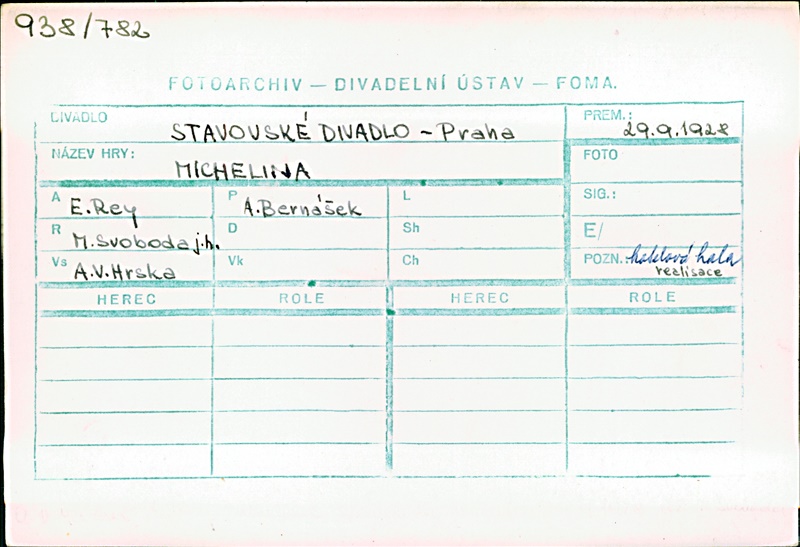 938/782
FOTOARCHIV — DIVADELNÍ ÚSTAV — FOMA.
DIVADLO STAVOVSKÉ DIVADLO – Praha
PREM.: 29.9.1928
NÁZEV HRY: MICHELINA
FOTO
A E. Rey
P A. Bernášek
L
SIG.:
R M. Svoboda j.h.
D
Sh
E/
Vs A.V. Hrska
Vk
Ch
POZN. hala
realisace
HEREC ROLE HEREC ROLE